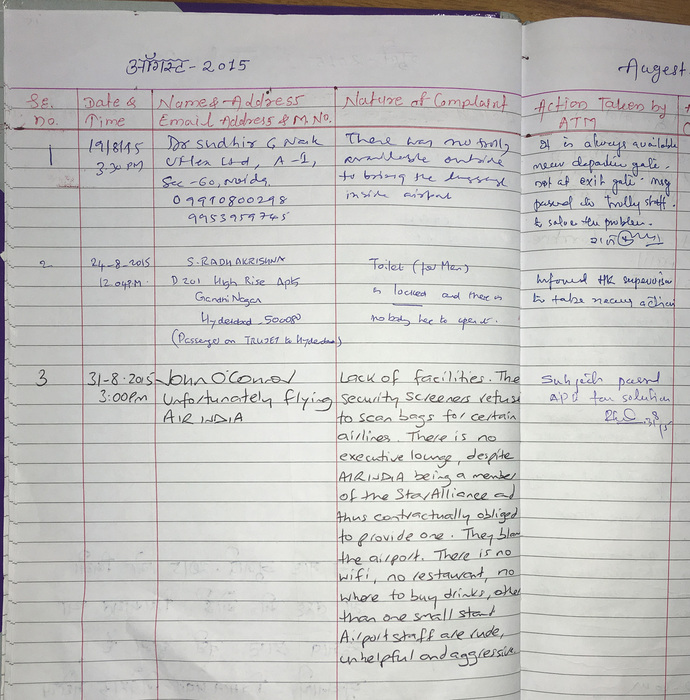 ऑगस्ट - 2015
August
Sr.
no.
Date &
Time
Name & Address
Email Address & M.No.
Nature of Complaint
Action Taken by
ATM
1
19/8/15
3:30 PM
Dr Sudhir G Naik
Uflex Ltd, A-1,
Sec-60, Noida,
09910800298
9953959745
There was no trolly
available outside
to bring the luggage
inside airport
It is always available
near departure gate.
not at exit gate. msg
passed to trolly staff.
to solve the problem.
2
24-8-2015
12.04PM.
S. RADHAKRISHNA
D 201 High Rise Apts
Gandhi Nagar
Hyderabad 500080
(Passenger on TRUJET to Hyderabad)
Toilet (for Men)
is locked and there is
nobody here to open it.
Informed HK supervisor
to take necessary action
3
31-8-2015
3:00pm
John O'Connor
Unfortunately flying
AIR INDIA
Lack of facilities. The
security screeners refuse
to scan bags for certain
airlines. There is no
executive lounge, despite
AIR INDIA being a member
of the Star Alliance and
thus contractually obliged
to provide one. They blame
the airport. There is no
wifi, no restaurant, no
where to buy drinks, other
than one small stand
Airport staff are rude,
unhelpful and aggressive
Subject passed
APD for solution